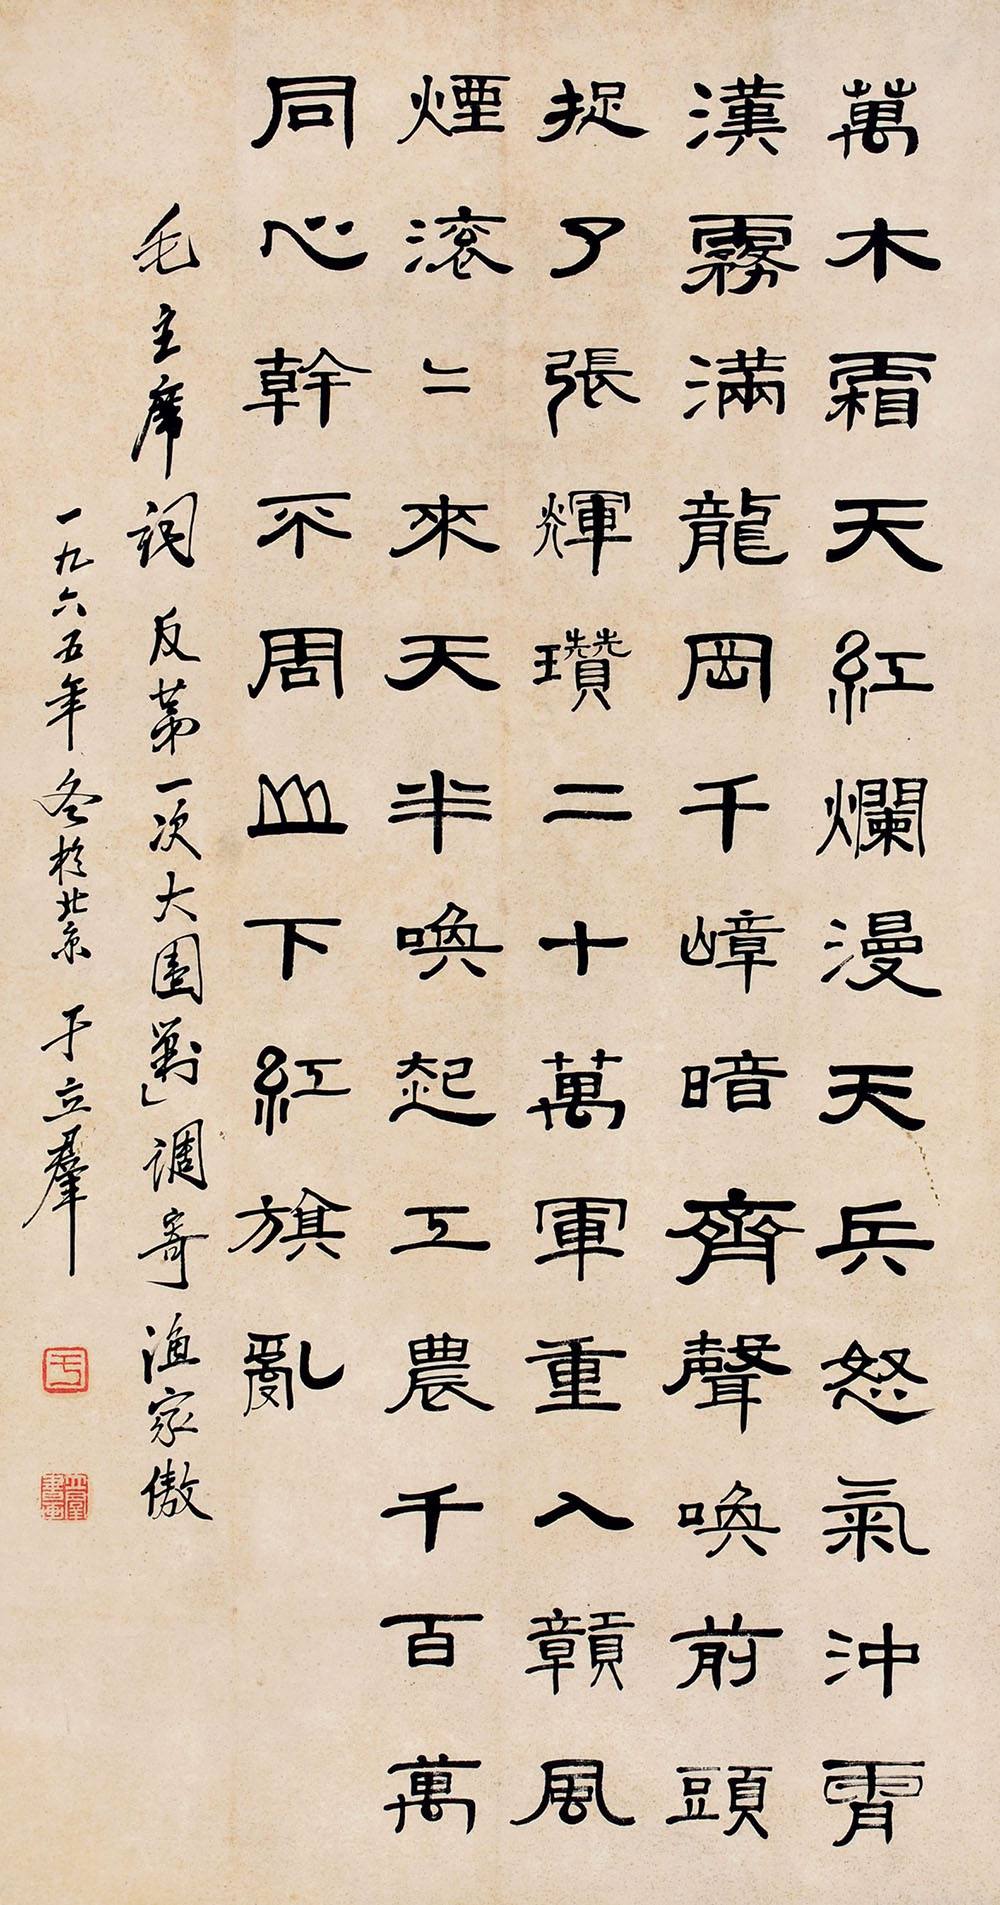 萬木霜天紅爛漫天兵怒氣沖霄
漢霧滿龍岡千嶂暗齊聲喚前頭
捉了張輝瓉二十萬軍重入贛風
煙滾〻來天半喚起工農千百萬
同心幹不周山下紅旗亂
毛主席詞 反第一次大圍剿」調寄漁家傲
一九六五年冬於北京 于立羣
于